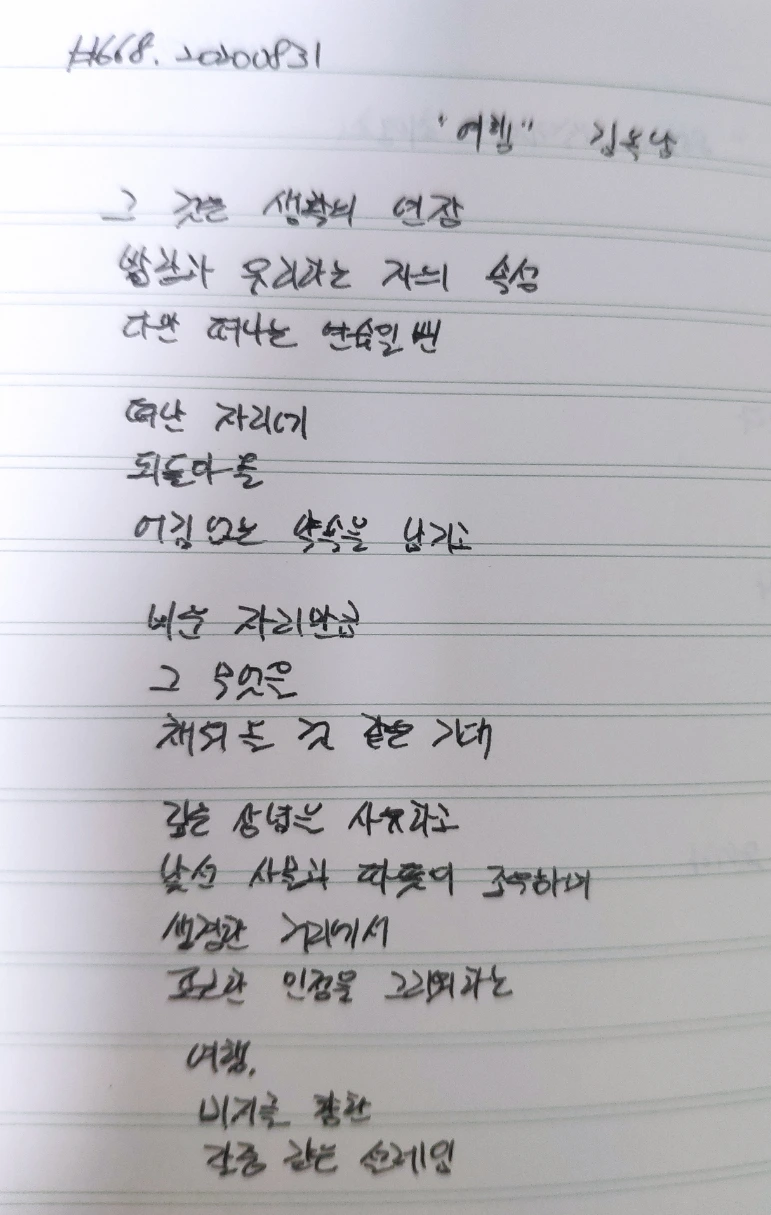 #668. 20200831
"여행" 김옥남
그 것은 생활의 연장
방황과 유리하는 자의 속성
다만 떠나는 연습일 뿐
떠난 자리에
되돌아 올
어김 없는 약속을 남기고
비운 자리만큼
그 무엇은
채워 올 것 같은 기대
깊은 상념은 사유하고
낯선 사물과 따뜻이 조우하며
생경한 거리에서
포근한 인정을 그리워하는
여행.
미지를 향한
갈증 같은 설레임